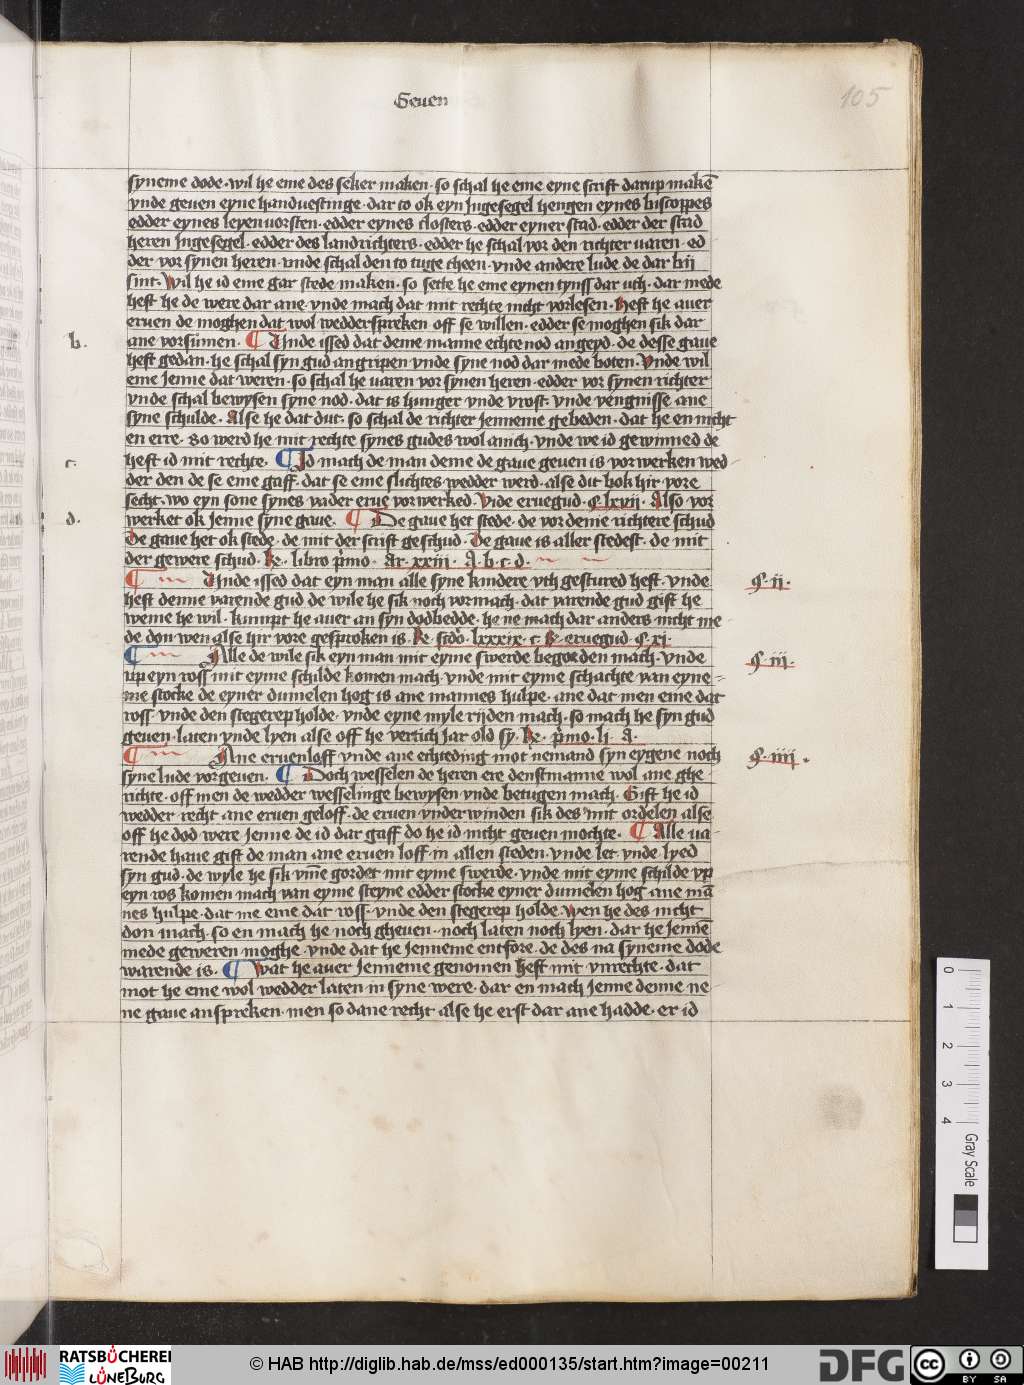 Geuen
105
syneme dode · wil he eme des seker maken · so schal he eme eyne scrift darup makē
vnde geuen eyne handuestinge · dar to ok eyn Ingesegel hengen eynes biscoppes
edder eynes leyenuorsten · edder eynes closters · edder eyner stad · edder der stad
heren Ingesegel · edder des landrichters · edder he schal vor den richter uaren · ed
der vor synen heren · vnde schal den to tuge theen · vnde andere lude de dar bij
sint · Wil he id eme gar stede maken · so sette he eme eynen tynss dar uth · dar mede
heft he de were dar ane · vnde mach dat mit rechte nicht vorlesen · Heft he auer
eruen de moghen dat wol wedderspreken off se willen · edder se moghen sik dar
b. ane vorsümen. ¶ Unde issed dat deme manne echte nod angeyd · de desse gaue
heft gedan · he schal syn gud angripen vnde syne nod dar mede boten · Vnde wil
eme Jenne dat weren · so schal he uaren vor synen heren · edder vor synen richter
vnde schal bewysen syne nod · dat is hunger vnde vrost · vnde vengnisse ane
syne schulde · Alse he dat dut · so schal de richter Jenneme gebeden · dat he en nicht
en erre · so werd he mit rechte synes gudes wol anich · vnde we id gewinned de
c. heft id mit rechte. ¶ Id mach de man deme de gaue geuen is vorwerken wed-
der den de se eme gaff · dat se eme slichtes wedder werd · alse dit bok hir vore
secht · wo eyn sone synes vader erue vorwerked · Vide eruegud · ¶ lxvij · Also vor
d. werket ok Jenne syne gaue. ¶ De gaue het stede · de vor deme richtere schud
De gaue het ok stede · de mit der scrift geschud · De gaue is aller stedest · de mit
der gewere schud · Re · libro p̄mo · ar · xxiii · A · b · c · d ·
¶ Unde issed dat eyn man alle syne kindere vth gestured heft · vnde ¶ · ij ·
heft denne varende gud de wile he sik noch vormach · dat varende gud gift he
weme he wil · kumpt he auer an syn dodbedde · he ne mach dar anders nicht me-
de don wen alse hir vore gesproken is · Re · sc̄do · lxxxix · c · R · eruegud · ¶ xj ·
¶ Alle de wile sik eyn man mit eyme swerde begorden mach · vnde ¶ · iij ·
vp eyn ross mit eyme schilde komen mach · vnde mit eyme schachte van eyne-
me stocke de eyner dumelen hog is ane mannes hulpe · ane dat men eme dat
ross · vnde den stegerep holde · vnde eyne myle rijden mach · so mach he syn gud
geuen · laten vnde lyen alse off he vertich Jar old sy · Re · p̄mo · lj · a ·
¶ Ane eruenloff vnde ane echteding mot nemand syn eygene noch ¶ · iiij ·
syne lude vorgeuen. ¶ Doch wesselen de heren ere denstmanne wol ane ghe-
richte · off men de wedder wesselinge bewysen vnde betugen mach · Gift he id
wedder recht ane eruen geloff · de eruen vnderwinden sik des mit ordelen alse
off he dod were Jenne de id dar gaff do he id nicht geuen mochte. ¶ Alle ua-
rende haue gift de man ane eruen loff in allen steden · vnde let · vnde lyed
syn gud · de wyle he sik vm̄e gordet mit eyme swerde · vnde mit eyme schilde vp
eyn ros komen mach van eyme steyne edder stocke eyner dumelen hog · ane mā
nes hulpe · dat me eme dat ross · vnde den stegerep holde · Wen he des nicht
don mach · so en mach he noch gheuen · noch laten noch lyen · dar he Jennē
mede geweren moghe · vnde dat he Jenneme entfore · de des na syneme dode
warende is. ¶ Wat he auer Jenneme genomen heft mit vnrechte · dat
mot he eme wol wedder laten in syne were · dar en mach Jenne denne ne-
ne gaue anspreken · men so dane recht alse he erst dar ane hadde · er id
0 1 2 3 4 Gray Scale
RATSBÜCHEREI LÜNEBURG
© HAB http://diglib.hab.de/mss/ed000135/start.htm?image=00211
DFG
cc BY SA